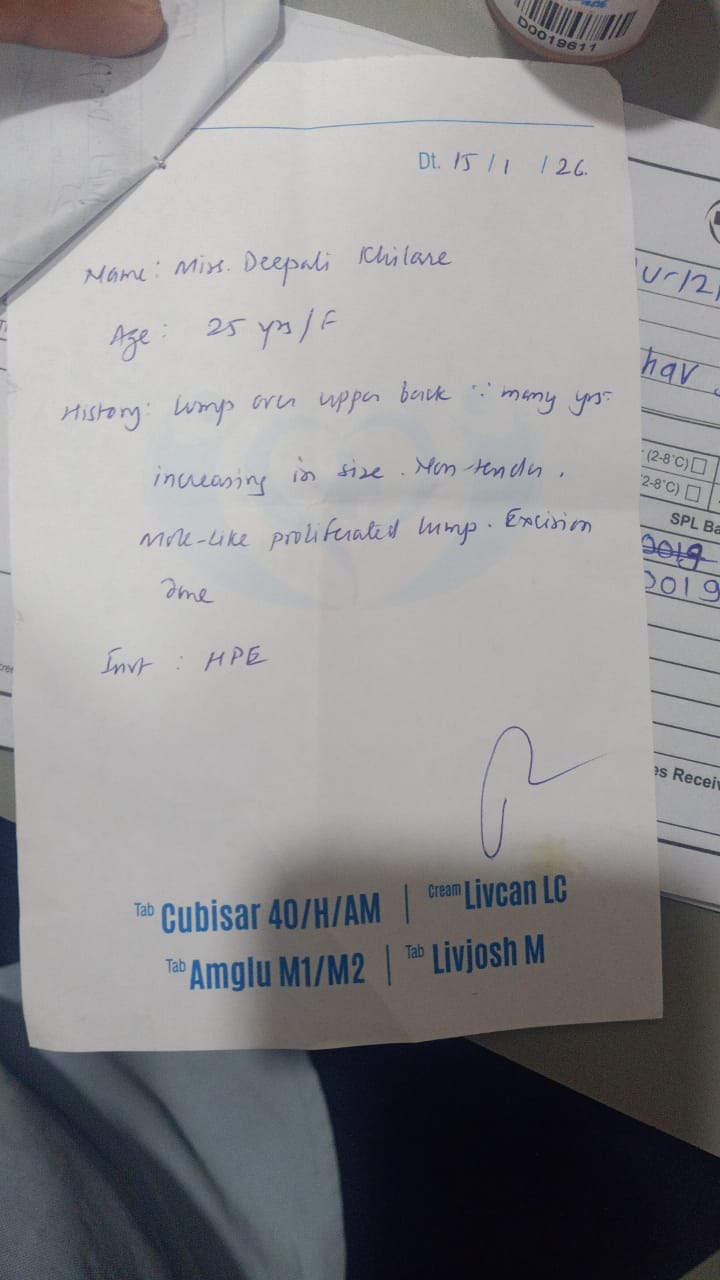 D0019611
Dt. 15/1/26.
Name: Miss. Deepali Khilare
Age: 25 yrs/F
History: Lump over upper back ∵ many yrs.
increasing in size. Non-tender.
Mole-like proliferated lump. Excision
done
Inv : HPE
Tab Cubisar 40/H/AM | Cream Livcan LC
Tab Amglu M1/M2 | Tab Livjosh M
hav
(2-8°C)
2-8°C)
SPL Ba
2019
0019
es Receiv